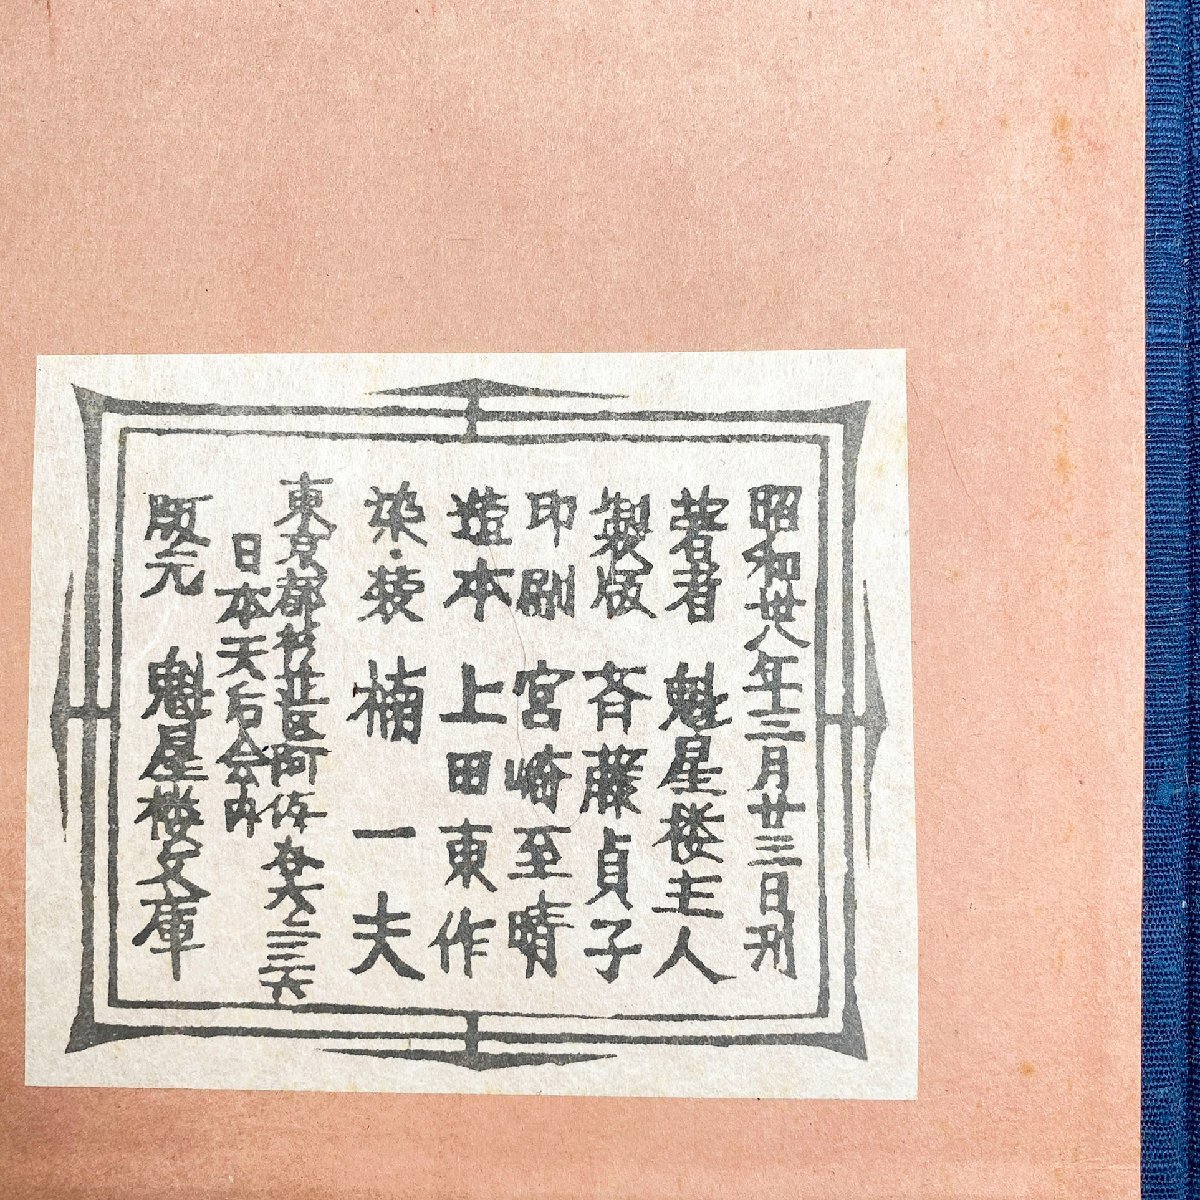 昭和卅八年三月廿三日刊
著者 魁星楼主人
製版 斉藤貞子
印刷 宮崎至晴
造本 上田東作
染・装 楠一夫
東京都杉並区阿佐谷六ノ二三六
日本天后会内
版元 魁星楼文庫